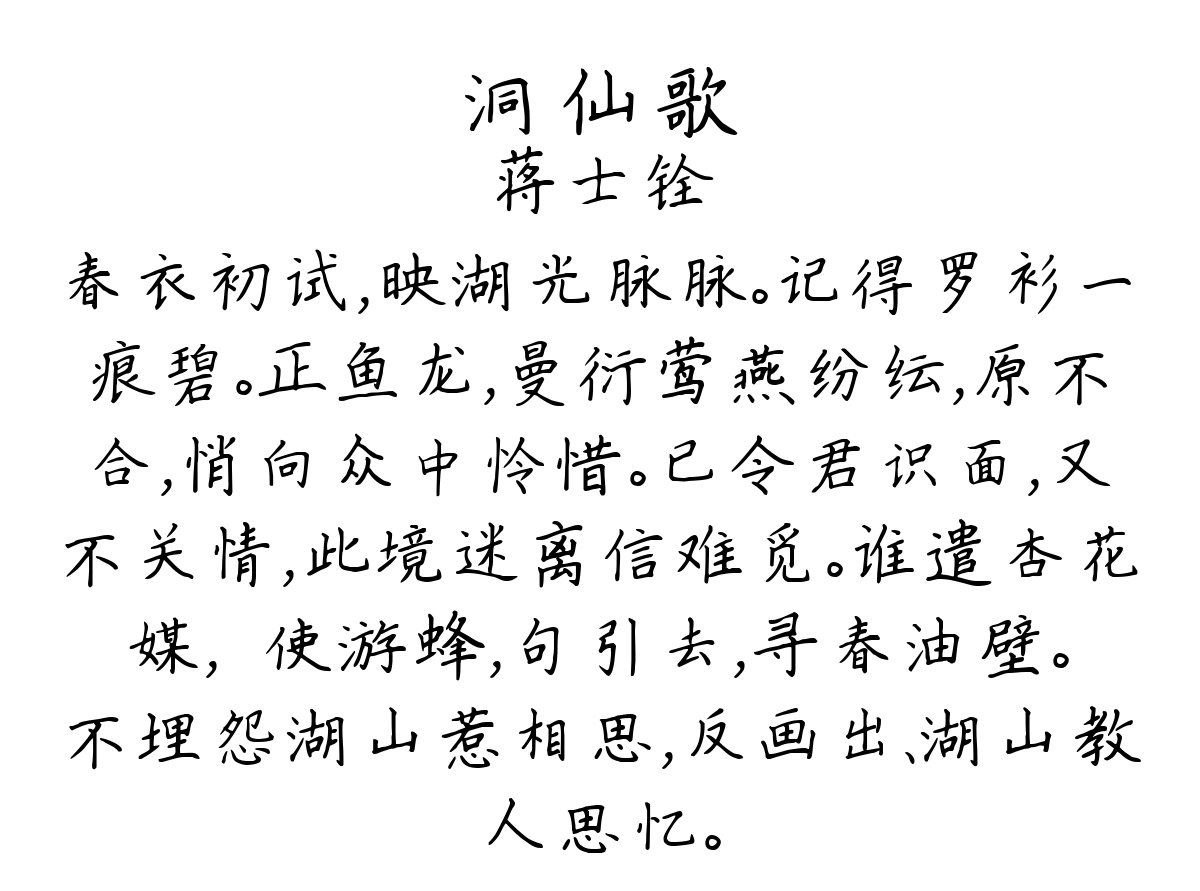 洞仙歌
蒋士铨
春衣初试,映湖光脉脉。记得罗衫一
痕碧。正鱼龙,曼衍莺燕纷纭,原不
合,悄向众中怜惜。已令君识面,又
不关情,此境迷离信难觅。谁遣杏花
媒,使游蜂,句引去,寻春油壁。
不埋怨湖山惹相思,反画出、湖山教
人思忆。